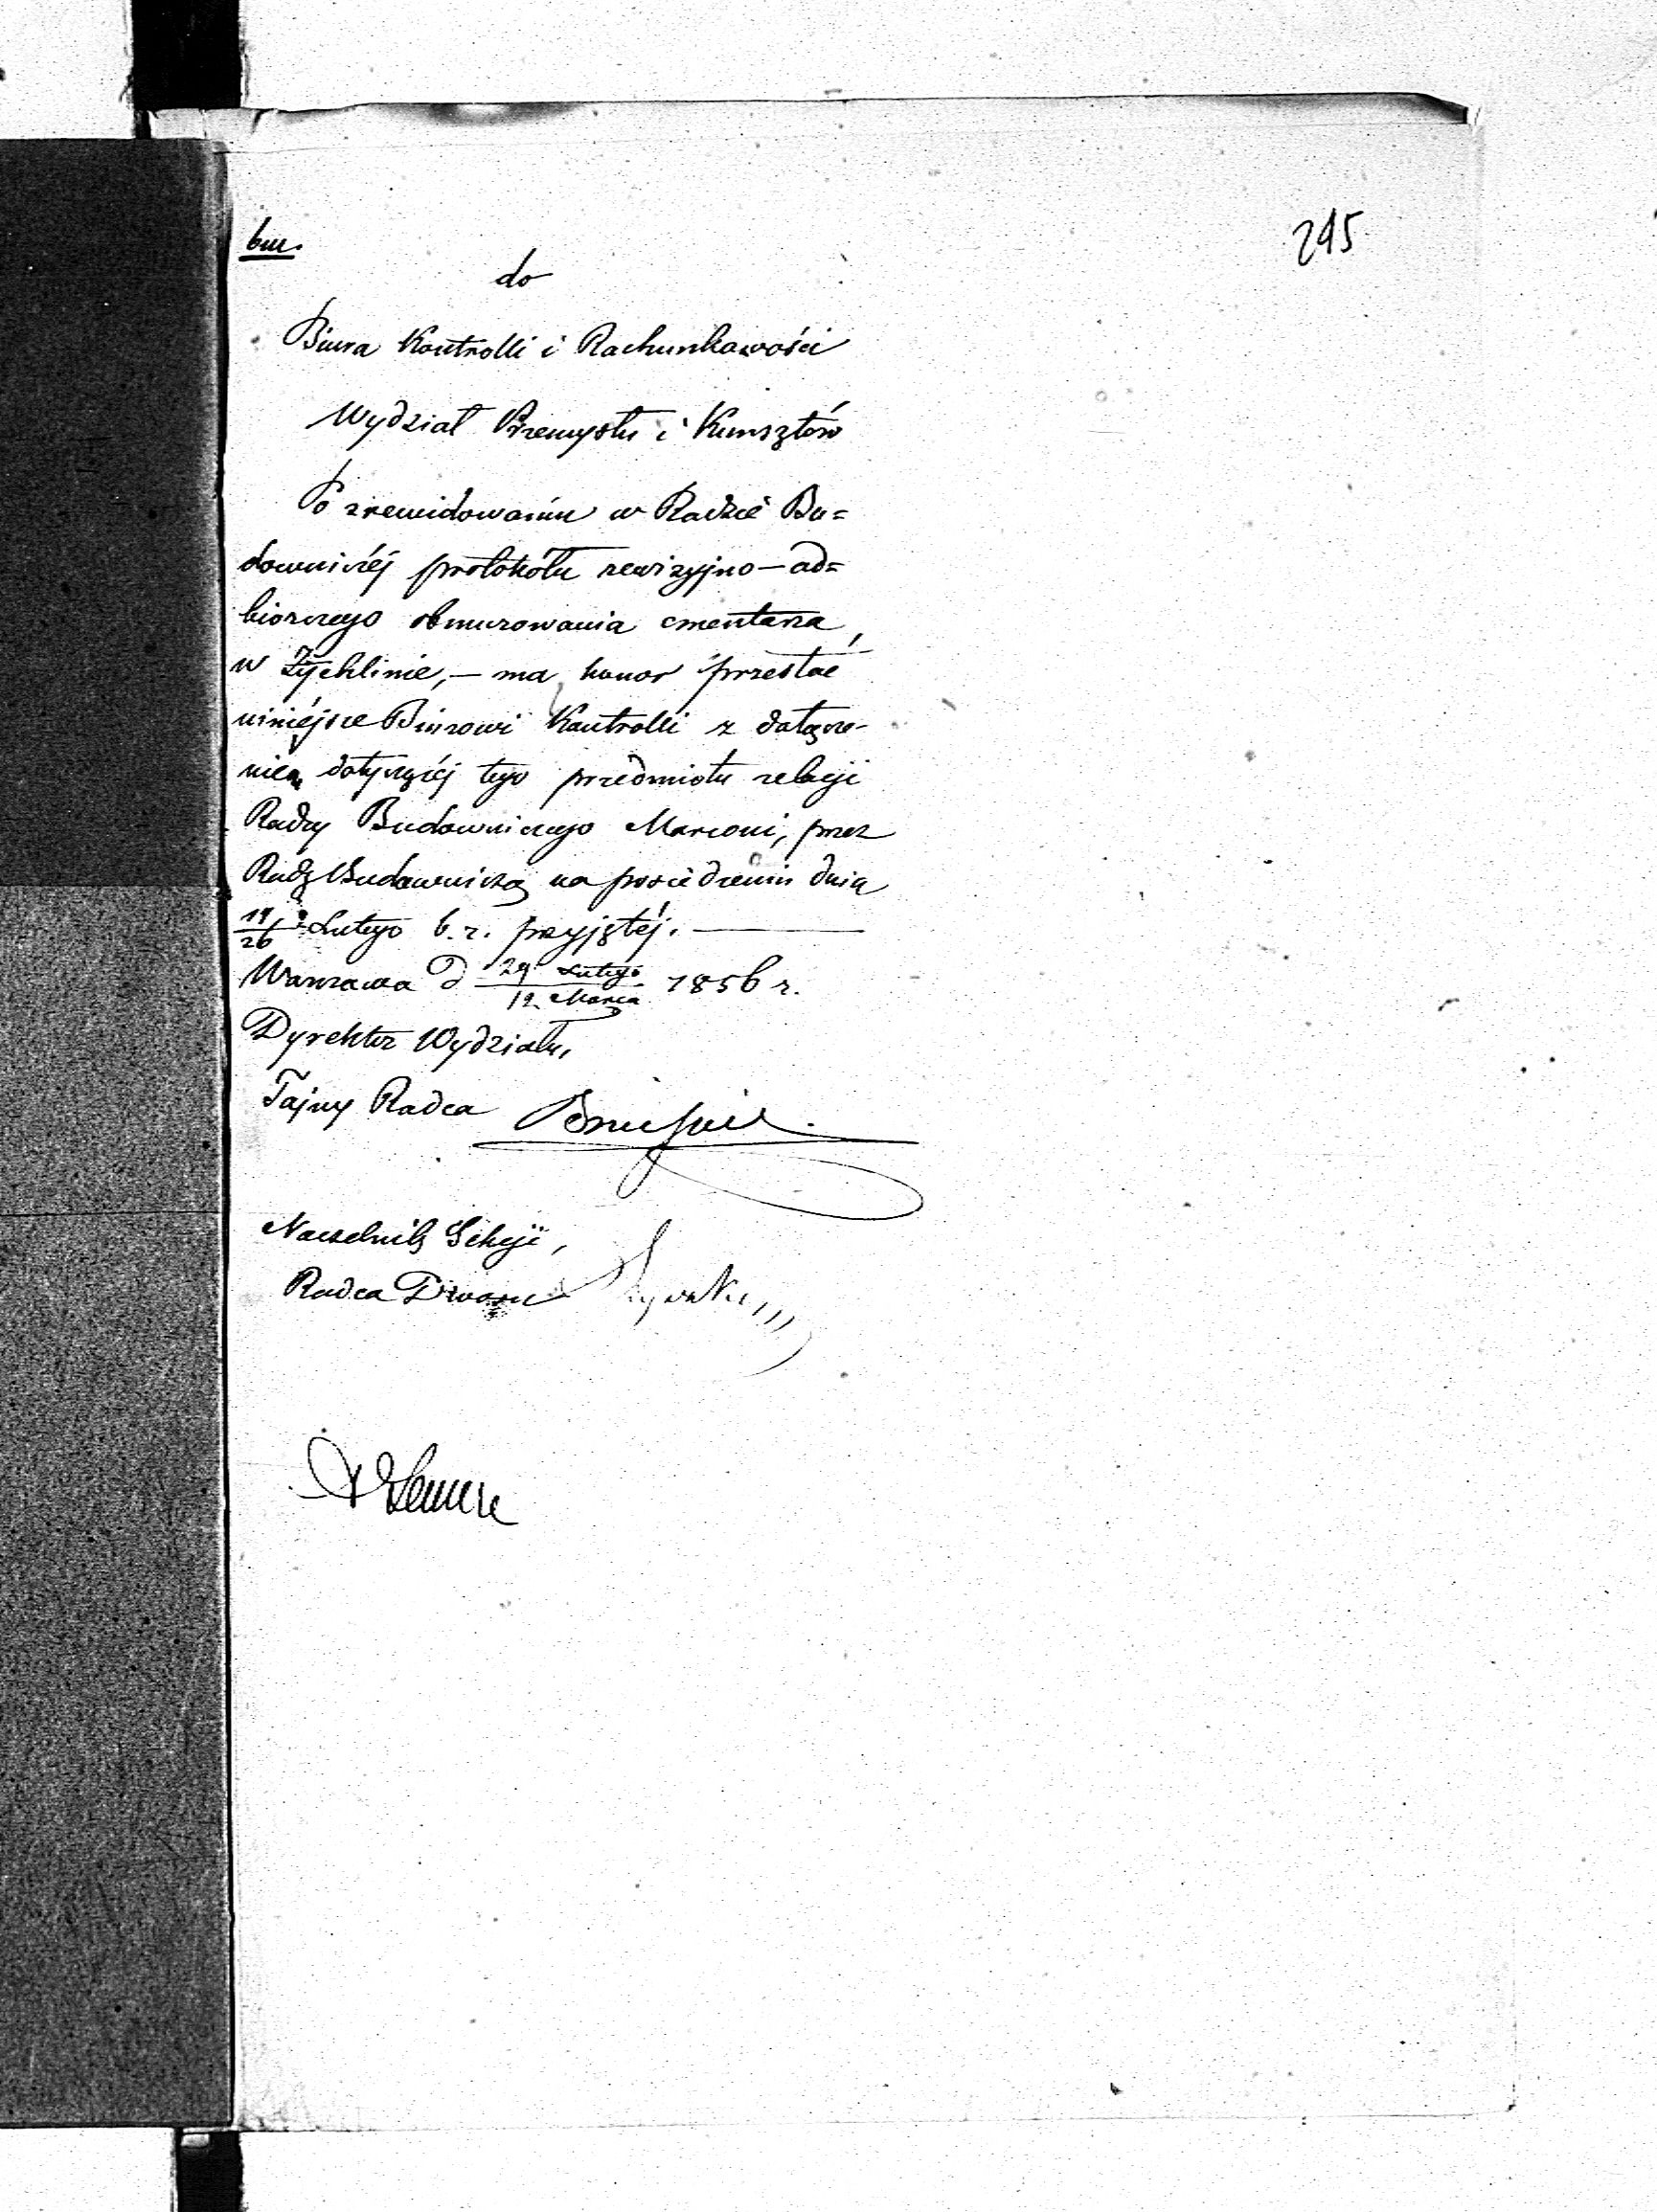 295
bm.
do
Biura Kontrolli i Rachunkowości
Wydział Przemysłu i Kunsztów
Po zrewidowaniu w Radzie Bu=
downiczéj protokółu rewizyjno-od=
biorczego obmurowania cmentarza
w Żychlinie,- ma honor przesłać
niniéjsze Biurowi Kontrolli z dołącze-
niem dotyczącéj tego przedmiotu relacji
Radzcy Budowniczego Marconi, przez
Radę Budowniczą na posiedzeniu dnia
/26 Lutego b. r. przyjętéj.
Warszawa d 29 Lutego / 12 Marca 1856 r.
Dyrektor Wydziału,
Tajny Radca
Naczelnik Sekcji,
Radca Dworu